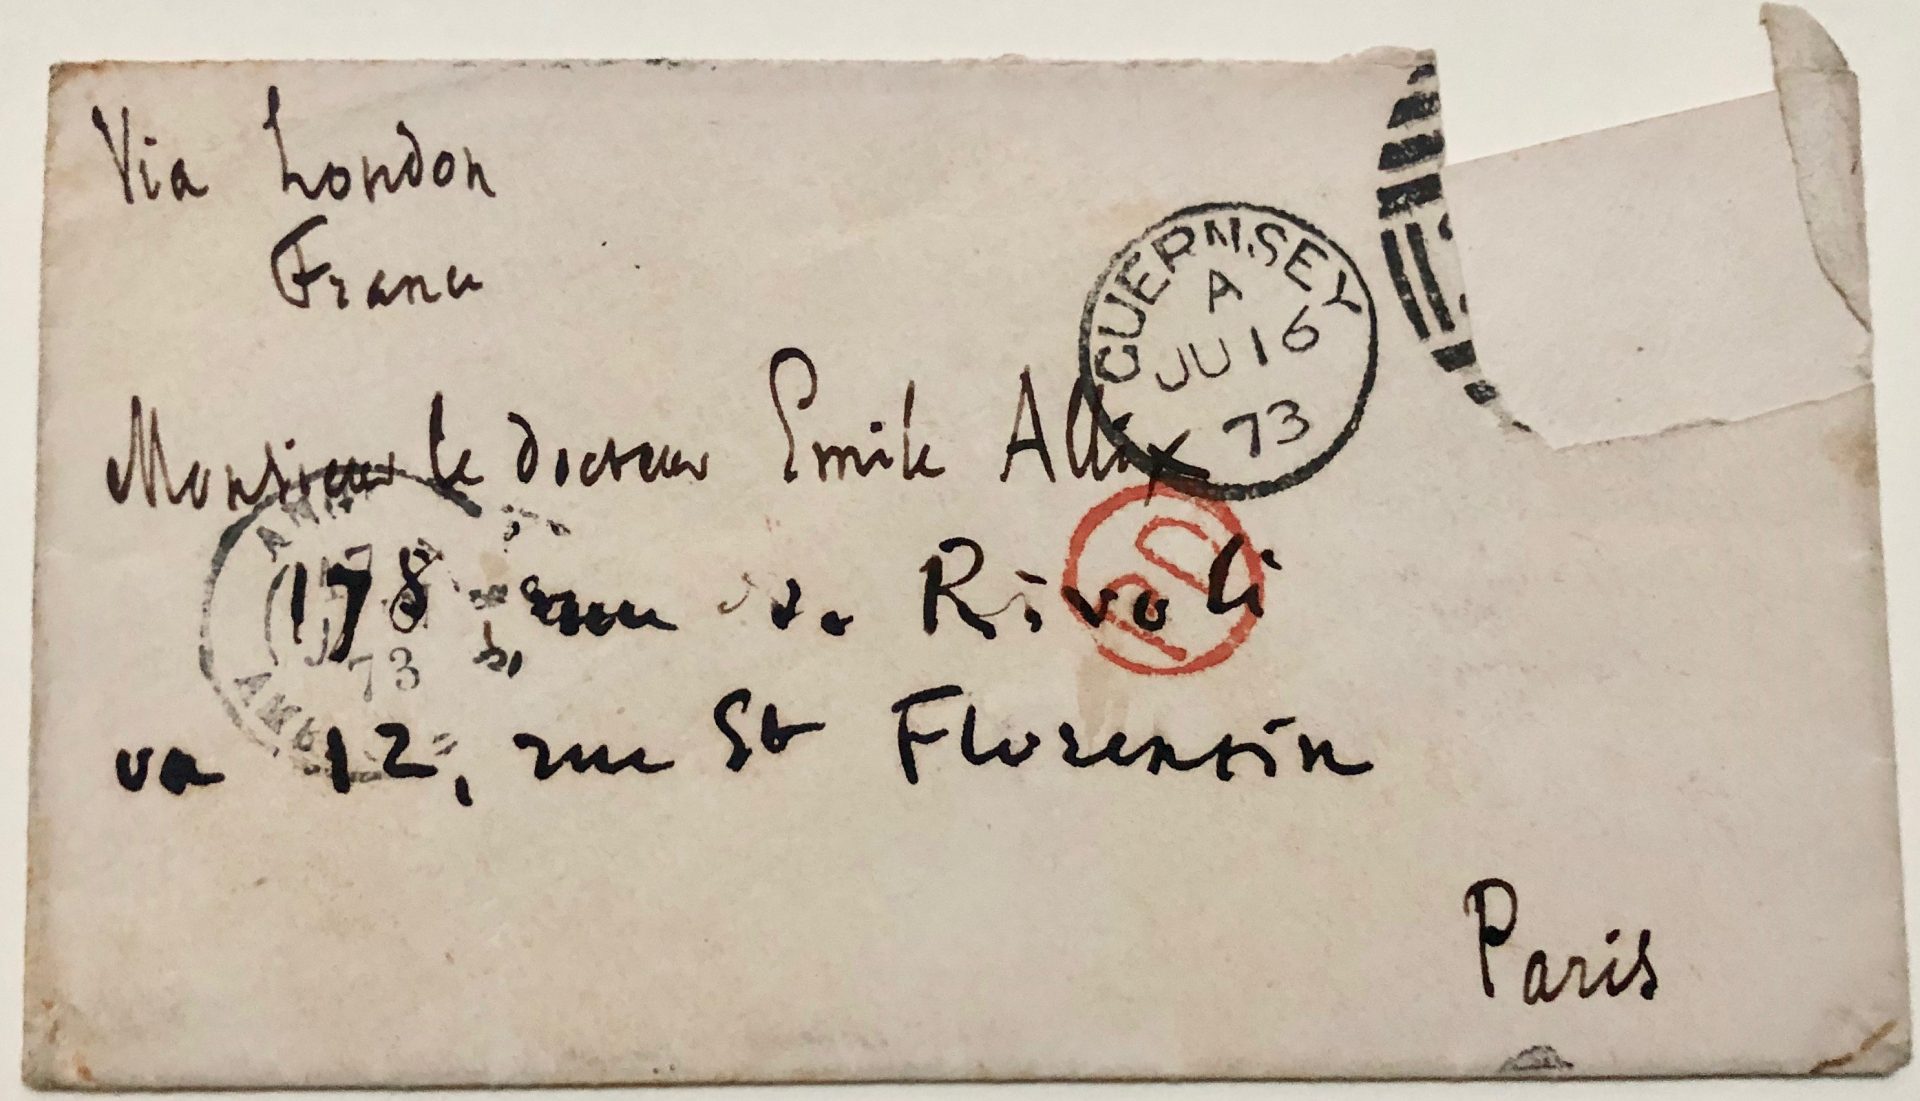 Via London
France
GUERNSEY
A
JU 16
73
Monsieur le docteur Emile Allix
PD
178 rue de Rivoli
73
ou 12, rue St Florentin
Paris